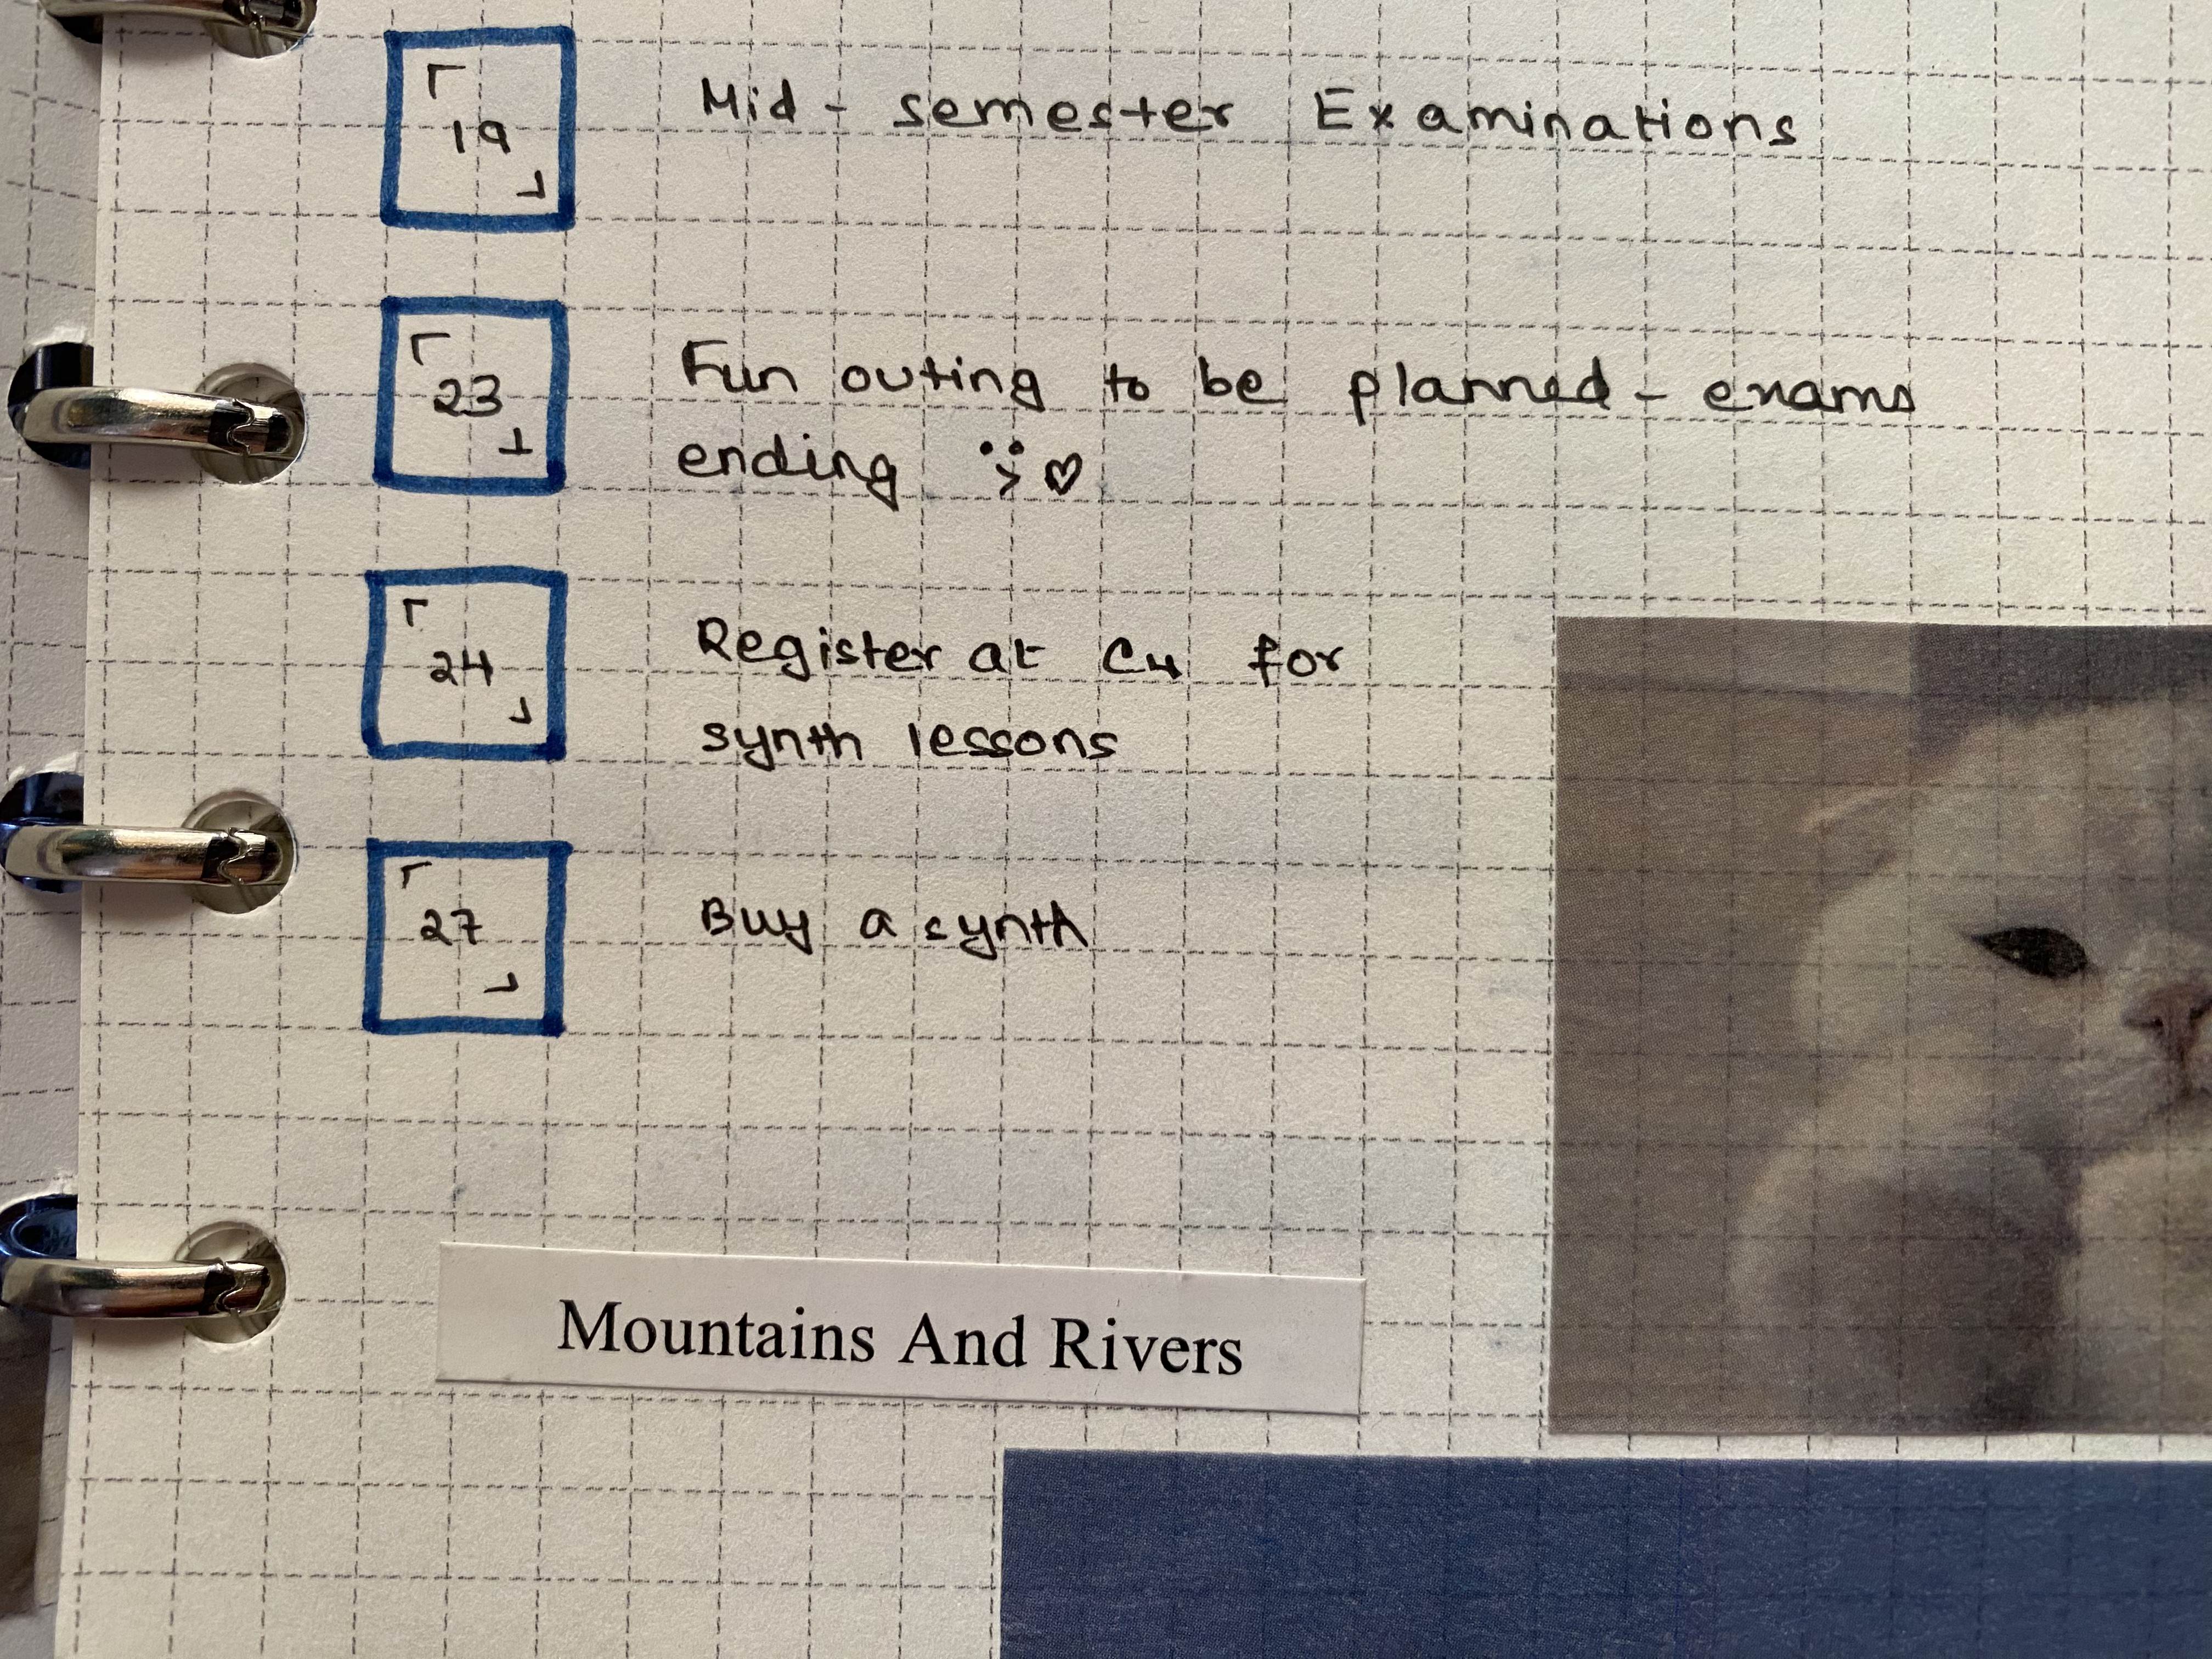 19
Mid - semester Examinations
23
Fun outing to be planned - exams
ending
24
Register at C4 for
synth lessons
27
Buy a synth
Mountains And Rivers